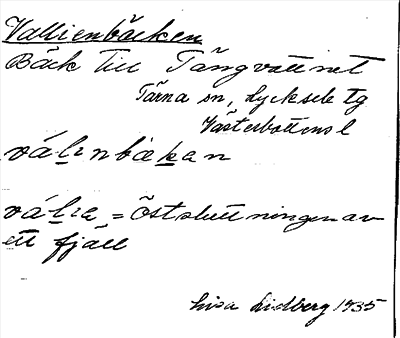 Vallienbäcken
Bäck till Tängvattnet
Tärna sn, Lycksele tg
Västerbottens l
válιnbäkan
válιa = östsluttningen av
ett fjäll
Lisa Lidberg 1935